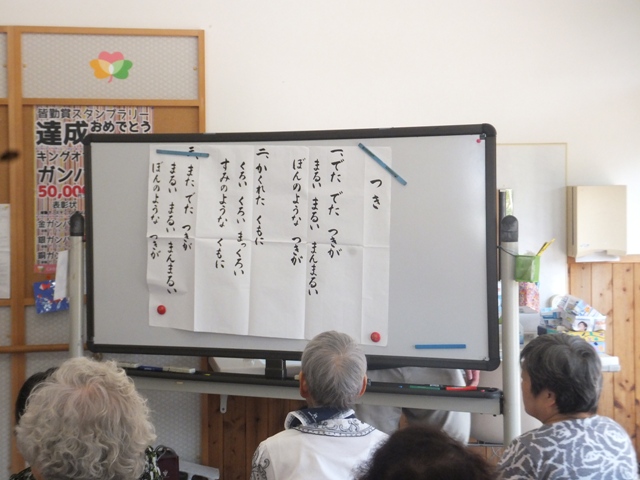 つき
一、でた でた つきが
まるい まるい まんまるい
ぼんのような つきが
二、かくれた くもに
くろい くろい まっくろい
すみのような くもに
三、また でた つきが
まるい まるい まんまるい
ぼんのような つきが
皆勤賞スタンプラリー
達成おめでとう
キングオ
ガン
50,000
表彰状